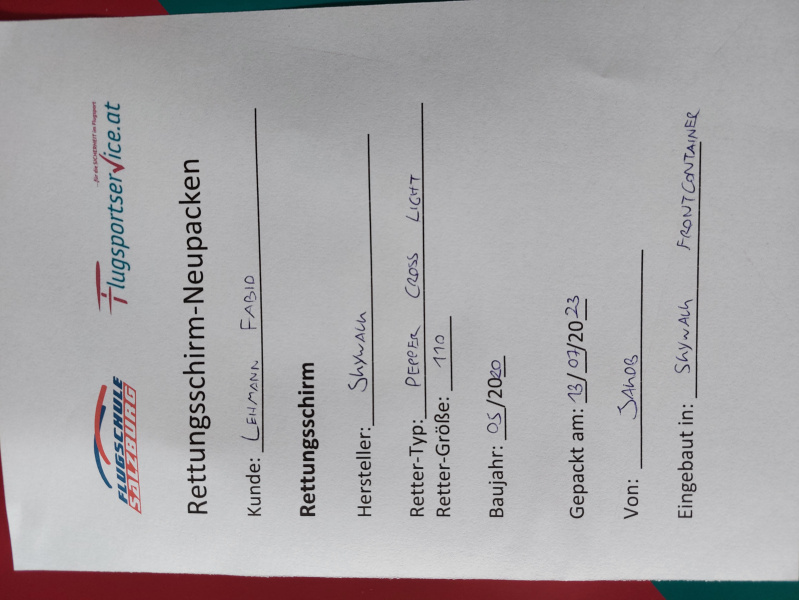 FLUGSCHULE
SALZBURG
...für die SICHERHEIT im Flugsport
Flugsportservice.at
Rettungsschirm-Neupacken
Kunde: LEHMANN FABIO
Rettungsschirm
Hersteller: SKYWALK
Retter-Typ: PEPPER CROSS LIGHT
Retter-Größe: 110
Baujahr: 05/2020
Gepackt am: 13/07/2023
Von: JAKOB
Eingebaut in: SKYWALK FRONTCONTAINER